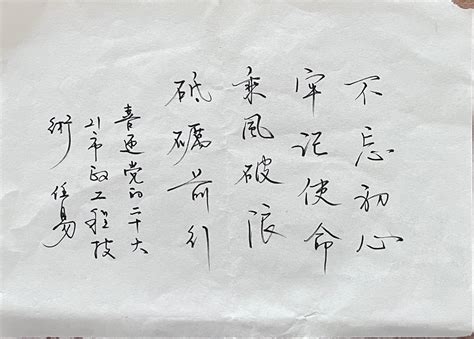 不忘初心
牢记使命
乘风破浪
砥砺前行
喜迎党的二十大
21市政工程技
术 任易